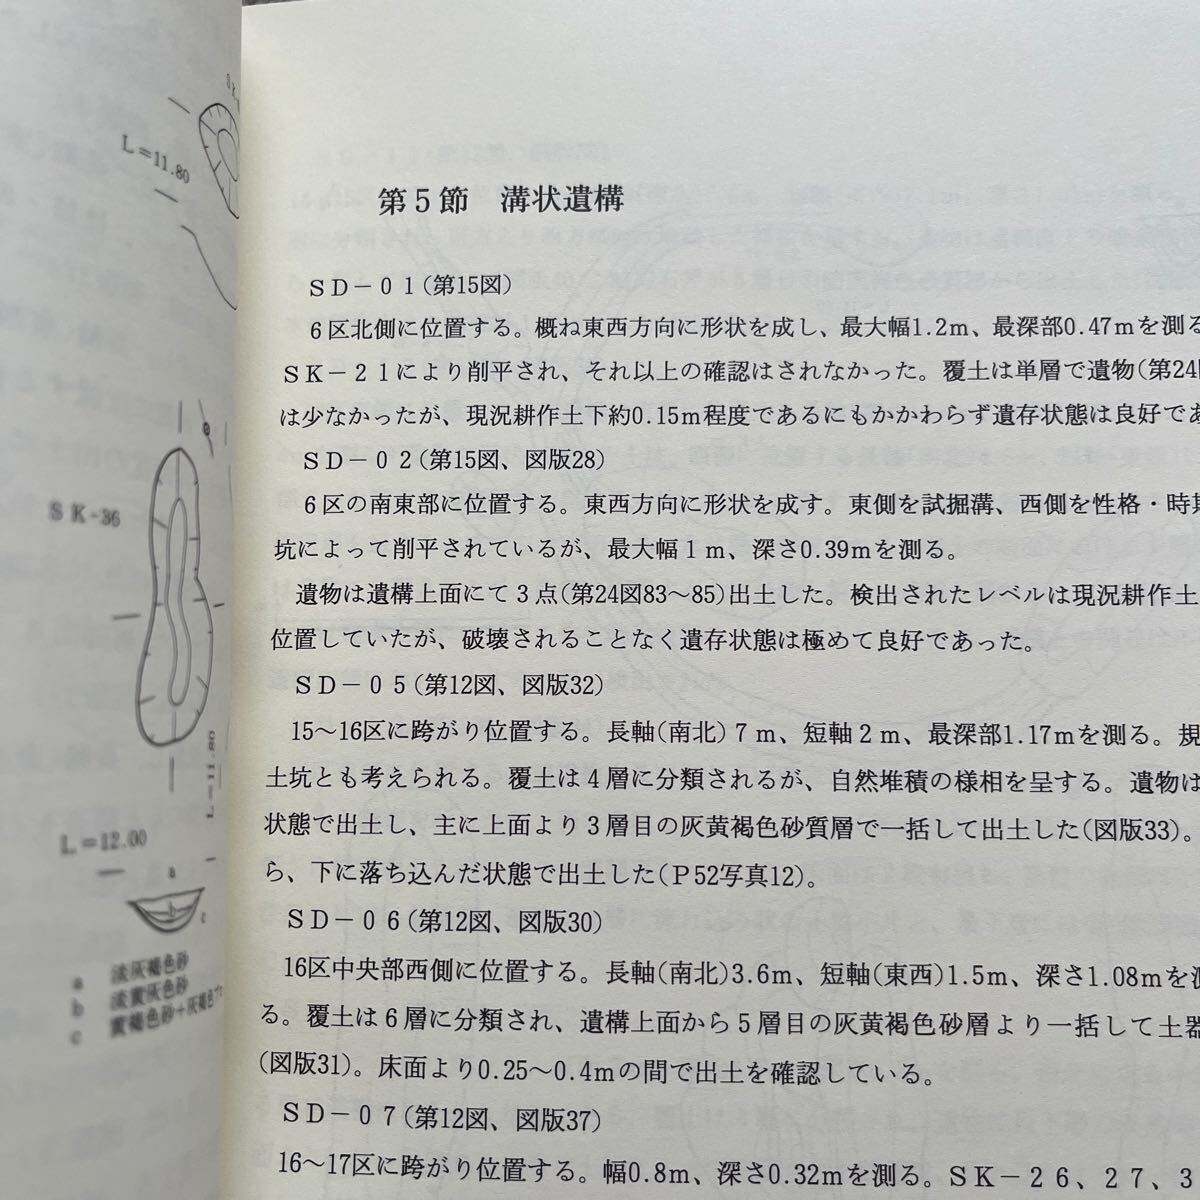 L=11.80
SK-36
L=12.00
a
c
a 淡灰褐色砂
b 淡黄灰色砂
c 黄褐色砂+灰褐色
第5節 溝状遺構
SD-01(第15図)
6区北側に位置する。概ね東西方向に形状を成し、最大幅1.2m、最深部0.47mを測る
SK-21により削平され、それ以上の確認はされなかった。覆土は単層で遺物(第24
は少なかったが、現況耕作土下約0.15m程度であるにもかかわらず遺存状態は良好であ
SD-02(第15図、図版28)
6区の南東部に位置する。東西方向に形状を成す。東側を試掘溝、西側を性格・時期
坑によって削平されているが、最大幅1m、深さ0.39mを測る。
遺物は遺構上面にて3点(第24図83〜85)出土した。検出されたレベルは現況耕作土
位置していたが、破壊されることなく遺存状態は極めて良好であった。
SD-05(第12図、図版32)
15〜16区に跨がり位置する。長軸(南北)7m、短軸2m、最深部1.17mを測る。規
土坑とも考えられる。覆土は4層に分類されるが、自然堆積の様相を呈する。遺物は
状態で出土し、主に上面より3層目の灰黄褐色砂質層で一括して出土した(図版33)。
ら、下に落ち込んだ状態で出土した(P52写真12)。
SD-06(第12図、図版30)
16区中央部西側に位置する。長軸(南北)3.6m、短軸(東西)1.5m、深さ1.08mを測
る。覆土は6層に分類され、遺構上面から5層目の灰黄褐色砂層より一括して土器
(図版31)。床面より0.25〜0.4mの間で出土を確認している。
SD-07(第12図、図版37)
16〜17区に跨がり位置する。幅0.8m、深さ0.32mを測る。SK-26、27、3